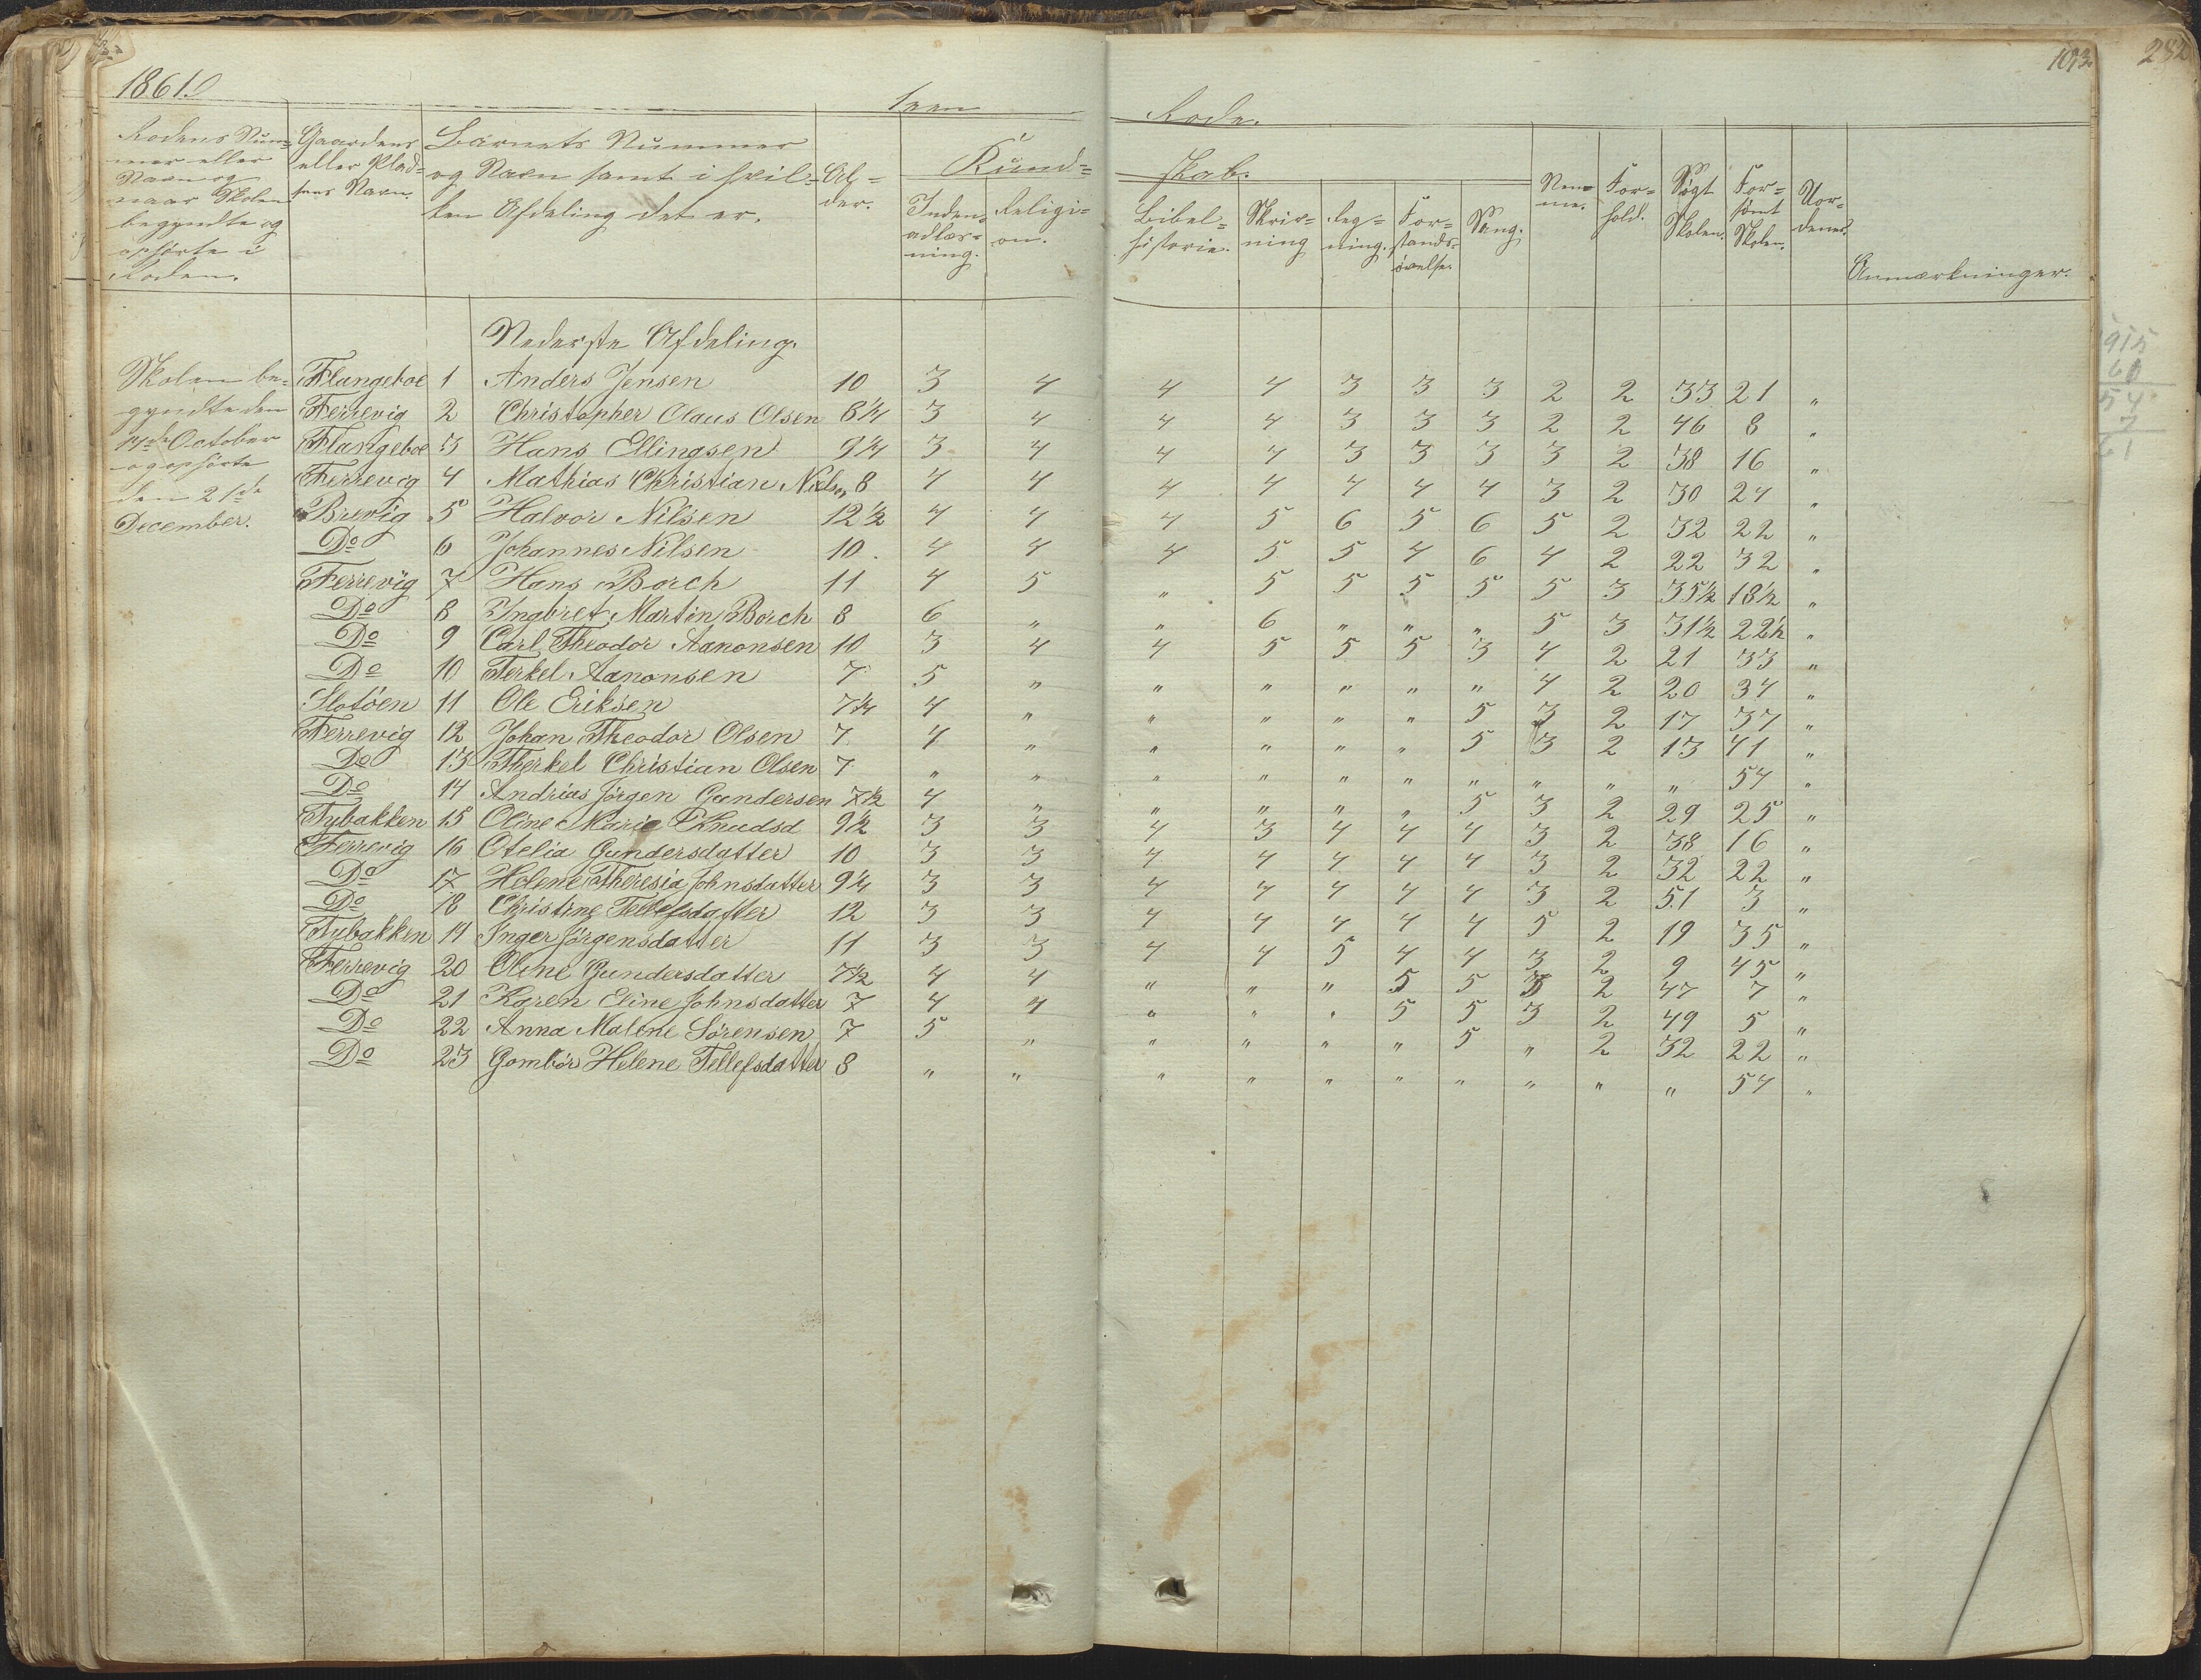 1861.
1ven
Rode.
103.
282
Rodens Num=
mer eller
Navn og
naar Skolen
begyndte og
ophørte i
Roden.
Gaardens
eller Plad=
sens Navn.
Barnets Nummer
og Navn samt i hvil=
ken Afdeling det er.
Al=
der.
Kund=
skab.
Inden=
adlæs=
ning.
Religi=
on.
Bibel=
historie.
Skriv=
ning
Reg=
ning.
For=
stands=
øvelse.
Sang.
Nem=
me.
For=
hold.
Søgt
Skolen.
For=
sømt
Skolen.
Uor=
dener.
Anmærkninger.
Nederste Afdeling.
Skolen be=
gyndte den
14de October
og ophørte
den 21de
December.
Flangeboe 1 Anders Jensen 10 3 4 4 4 3 3 3 2 2 33 21 "
Ferrevig 2 Christopher Olaus Olsen 8 1/4 3 4 4 4 3 3 3 2 2 46 8 "
Flangeboe 3 Hans Ellingsen 9 1/4 3 4 4 4 3 3 3 3 2 38 16 "
Ferrevig 4 Mathias Christian Niels. 8 4 4 4 4 4 4 4 3 2 30 24 "
Brevig 5 Halvor Nilsen 12 1/2 4 4 4 5 6 5 6 5 2 32 22 "
Do 6 Johannes Nilsen 10 4 4 4 5 5 4 6 4 2 22 32 "
Ferrevig 7 Hans Borch 11 4 5 " 5 5 5 5 5 3 35 1/2 18 1/2 "
Do 8 Ingbret Martin Borch 8 6 " " 6 " " " 5 3 31 1/2 22 1/2 "
Do 9 Carl Theodor Aanonsen 10 3 4 4 5 5 5 3 4 2 21 33 "
Do 10 Terkel Aanonsen 7 5 " " " " " " 4 2 20 34 "
Slotøen 11 Ole Eriksen 7 1/4 4 " " " " " 5 3 2 17 37 "
Ferrevig 12 Johan Theodor Olsen 7 4 " " " " " 5 3 2 13 41 "
Do 13 Therkel Christian Olsen 7 " " " " " " " " " " 54 "
Do 14 Andrias Jörgen Gundersen 7 1/2 4 " " " " " 5 3 2 29 25 "
Tybakken 15 Oline Marie Knudsd 9 1/2 3 3 4 3 4 4 4 3 2 38 16 "
Ferrevig 16 Otelia Gundersdatter 10 3 3 4 4 4 4 4 3 2 32 22 "
Do 17 Helene Theresia Johnsdatter 9 1/4 3 3 4 4 4 4 4 3 2 51 3 "
Do 18 Christine Tellefsdatter 12 3 3 4 4 4 4 4 5 2 19 35 "
Tybakken 19 Inger Jörgensdatter 11 3 3 4 4 5 4 4 3 2 9 45 "
Ferrevig 20 Oline Gundersdatter 7 1/2 4 4 " " " 5 5 3 2 47 7 "
Do 21 Karen Eline Johnsdatter 7 4 4 " " " 5 5 3 2 49 5 "
Do 22 Anna Malene Sörensen 7 5 " " " " " 5 " 2 32 22 "
Do 23 Gombör Helene Tellefsdatter 8 " " " " " " " " " " 54 "